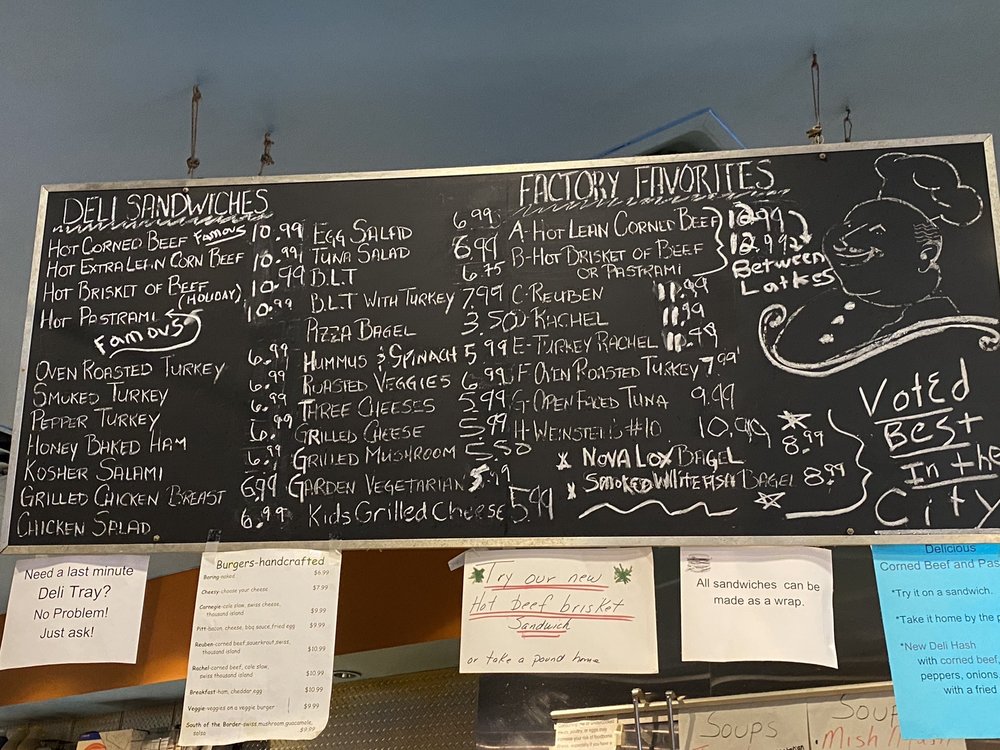 DELI SANDWICHES
HOT CORNED BEEF FAMOUS 10.99
HOT EXTRA LEAN CORN BEEF 10.99
HOT BRISKET OF BEEF 10.99
(HOLIDAY)
HOT PASTRAMI 10.99
FAMOUS
OVEN ROASTED TURKEY 6.99
SMOKED TURKEY 6.99
PEPPER TURKEY 6.99
HONEY BAKED HAM 6.99
KOSHER SALAMI 6.99
GRILLED CHICKEN BREAST 6.99
CHICKEN SALAD 6.99
EGG SALAD 6.99
TUNA SALAD 6.99
B.L.T 6.75
B.L.T WITH TURKEY 7.99
PIZZA BAGEL 3.50
HUMMUS & SPINACH 5.99
ROASTED VEGGIES 6.99
THREE CHEESES 5.99
GRILLED CHEESE 5.99
GRILLED MUSHROOM 5.50
GARDEN VEGETARIAN
Kids Grilled Cheese 5.99
FACTORY FAVORITES
A-HOT LEAN CORNED BEEF
B-HOT BRISKET OF BEEF
OR PASTRAMI
12.99
Between
Latkes
C-REUBEN 11.99
D-RACHEL 11.99
E-TURKEY RACHEL
F OVEN ROASTED TURKEY 7.99
G-OPEN FACED TUNA 9.99
H-WEINSTEIN'S #10 10.99
NOVA LOX BAGEL 8.99
SMOKED WHITEFISH BAGEL 8.99
Voted
Best
In the
City
Need a last minute
Deli Tray?
No Problem!
Just ask!
Burgers-handcrafted
Boring-naked $6.99
Cheesy-choose your cheese $7.99
Carnegie-cole slaw, swiss cheese,
thousand island $9.99
Pitt-bacon, cheese, bbq sauce,fried egg $9.99
Reuben-corned beef,sauerkraut,swiss,
thousand island $10.99
Rachel-corned beef, cole slaw,
swiss thousand island $10.99
Breakfast-ham, cheddar,egg $10.99
Veggie-veggies on a veggie burger $9.99
South of the Border-swiss,mushroom,guacamole,
salsa $9.99
Try our new
Hot beef brisket
Sandwich
or take a pound home
All sandwiches can be
made as a wrap.
Delicious
Corned Beef and Pas
*Try it on a sandwich.
*Take it home by the p
*New Deli Hash
with corned beef,
peppers, onions
with a fried
SOUPS
SOUP
Mish